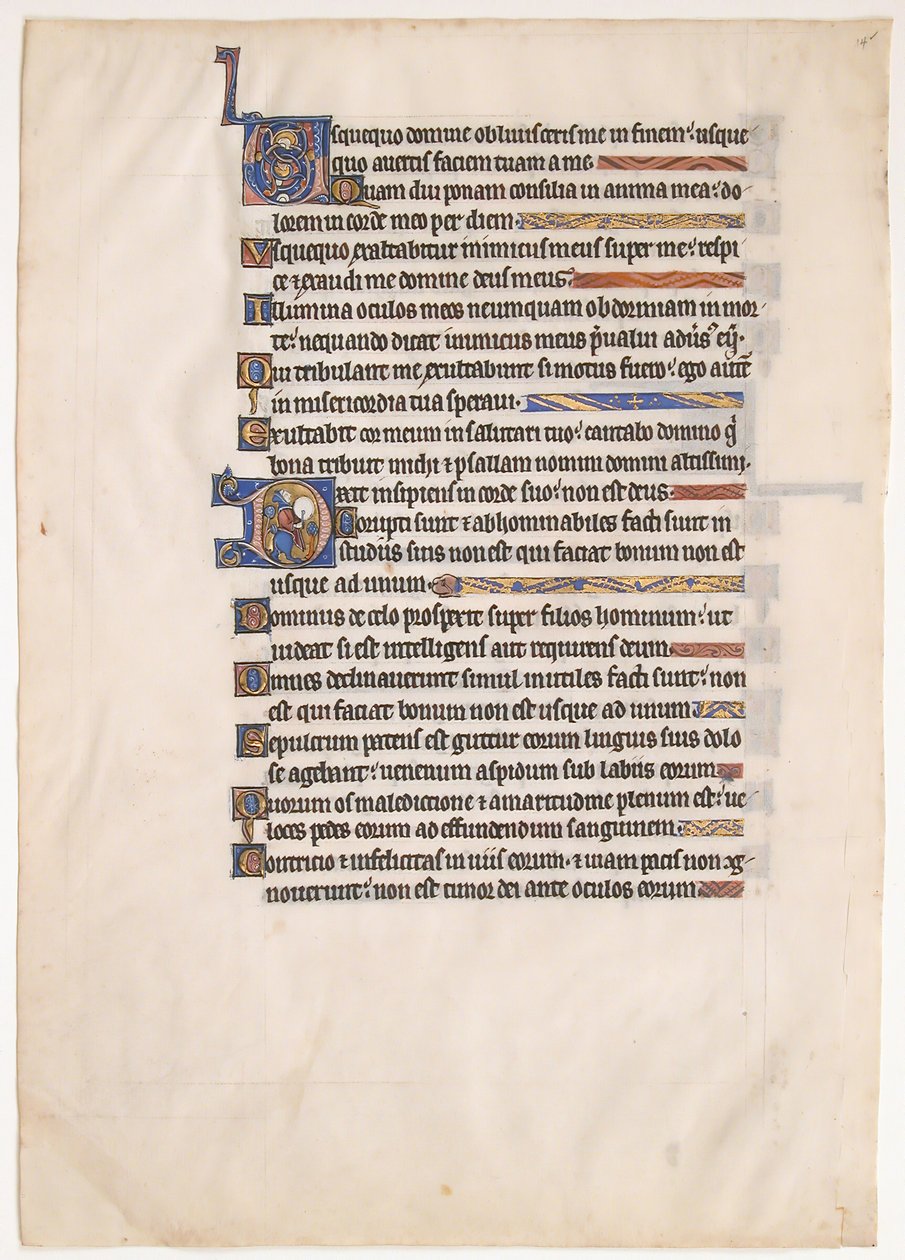 14
Usquequo domine obliuisceris me in finem: usque
quo auertis faciem tuam a me.
Quam diu ponam consilia in anima mea: do-
lorem in corde meo per diem.
Vsquequo exaltabitur inimicus meus super me: respi
ce ⁊ exaudi me domine deus meus.
Illumina oculos meos ne umquam obdormiam in mor-
te: nequando dicat inimicus meus p̄ualui adũsꝰ eũ.
Qui tribulant me exultabunt si motus fuero: ego aut̄
in misericordia tua speraui.
Exultabit cor meum in salutari tuo: cantabo domino q̄
bona tribuit michi ⁊ psallam nomini domini altissimi.
Dixit insipiens in corde suo: non est deus.
Corupti sunt ⁊ abhominabiles facti sunt in
studiis suis non est qui faciat bonum non est
usque ad unum.
Dominus de celo prospexit super filios hominum: ut
uideat si est intelligens aut requirens deum.
Omnes declinauerunt simul inutiles facti sunt: non
est qui faciat bonum non est usque ad unum.
Sepulcrum patens est guttur eorum linguis suis dolo
se agebant: uenenum aspidum sub labiis eorum.
Quorum os maledictione ⁊ amaritudine plenum est: ue-
loces pedes eorum ad effundendum sanguinem.
Contricio ⁊ infelicitas in uiis eorum. ⁊ uiam pacis non ꝯg-
nouerunt: non est timor dei ante oculos eorum.